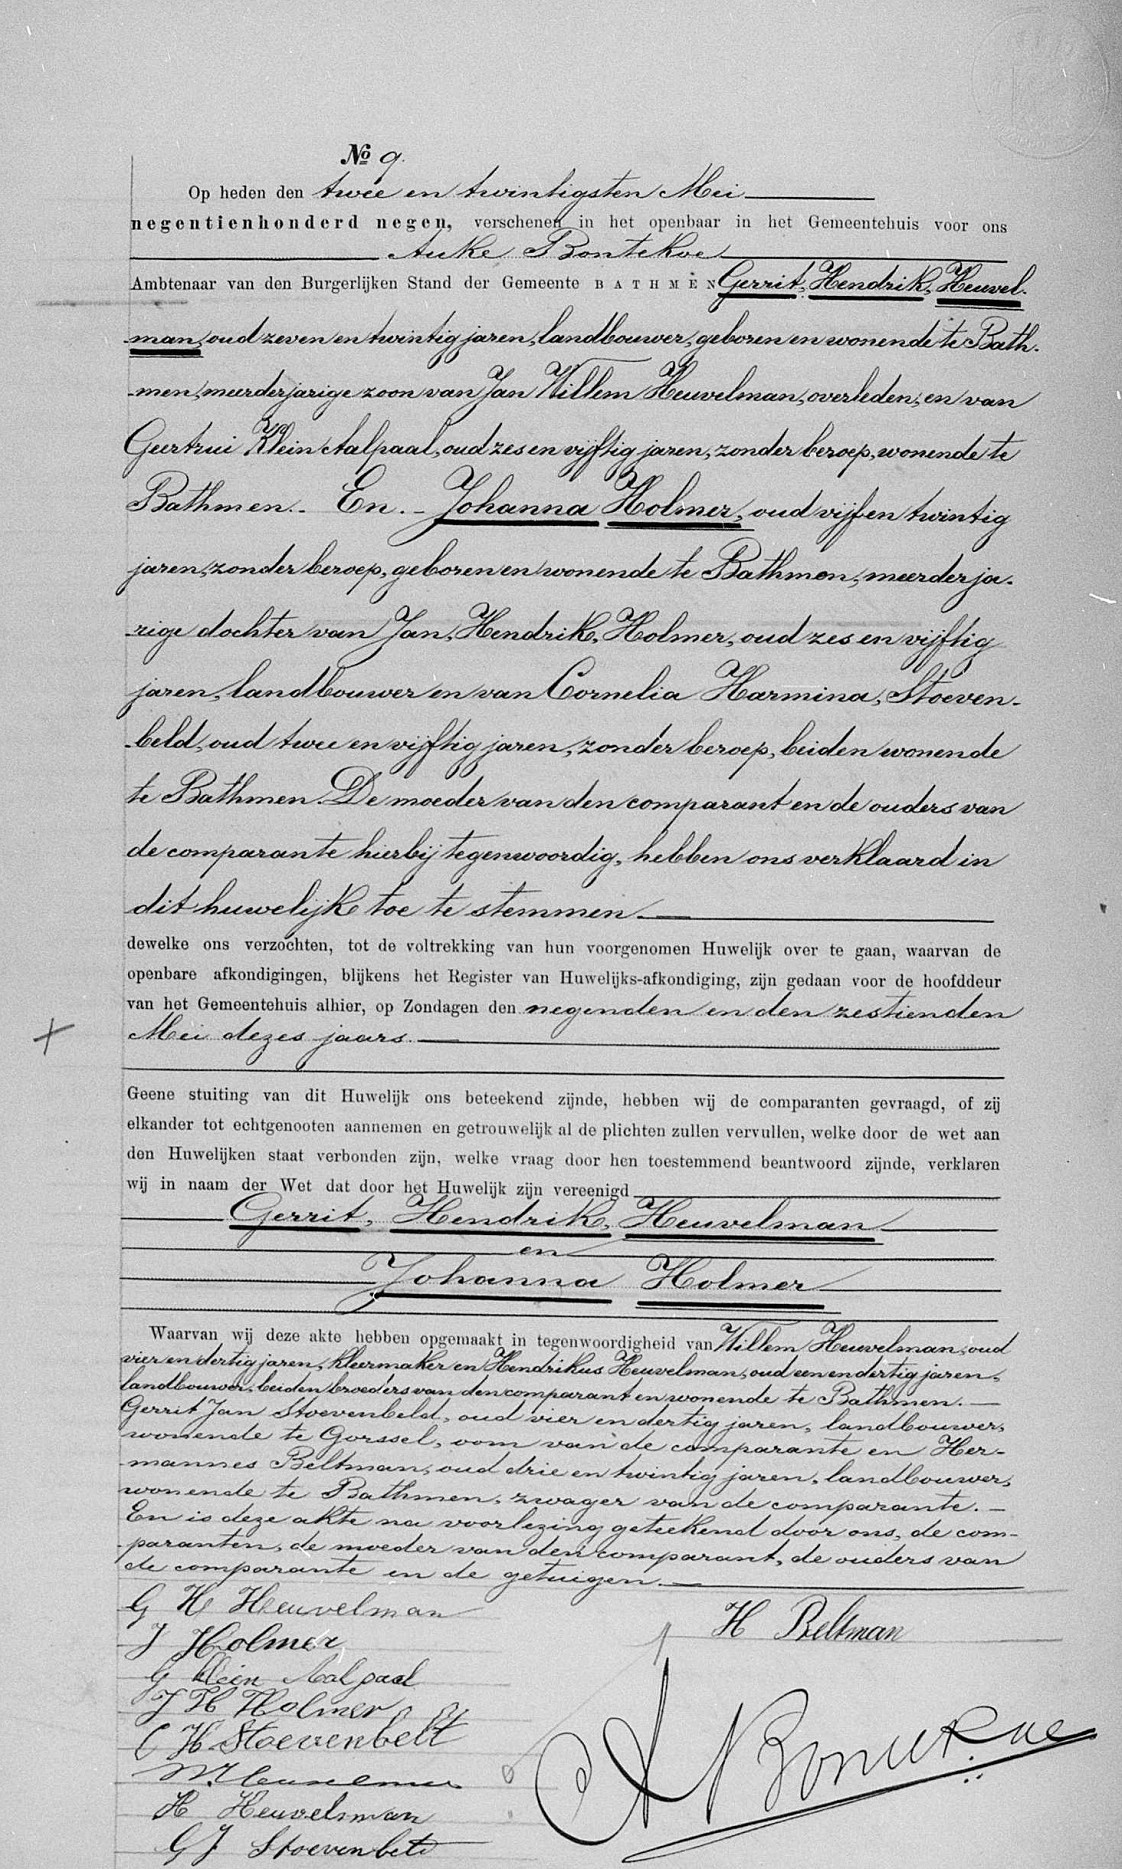 № 9.
Op heden den twee en twintigsten Mei
negentienhonderd negen, verschenen in het openbaar in het Gemeentehuis voor ons
Auke Bontekoe
Ambtenaar van den Burgerlijken Stand der Gemeente BATHMEN Gerrit, Hendrik, Heuvel-
man, oud zeven en twintig jaren, landbouwer, geboren en wonende te Bath-
men, meerderjarige zoon van Jan Willem Heuvelman, overleden, en van
Geertrui Klein Aalpaal, oud zes en vijftig jaren, zonder beroep, wonende te
Bathmen. - En. - Johanna Holmer, oud vijf en twintig
jaren, zonder beroep, geboren en wonende te Bathmen, meerderja-
rige dochter van Jan, Hendrik, Holmer, oud zes en vijftig
jaren, landbouwer en van Cornelia Harmina, Stoeven-
beld, oud twee en vijftig jaren, zonder beroep, beiden wonende
te Bathmen. De moeder van den comparant en de ouders van
de comparante hierbij tegenwoordig, hebben ons verklaard in
dit huwelijk toe te stemmen.
dewelke ons verzochten, tot de voltrekking van hun voorgenomen Huwelijk over te gaan, waarvan de
openbare afkondigingen, blijkens het Register van Huwelijks-afkondiging, zijn gedaan voor de hoofddeur
van het Gemeentehuis alhier, op Zondagen den negenden en den zestienden
Mei dezes jaars.
Geene stuiting van dit Huwelijk ons beteekend zijnde, hebben wij de comparanten gevraagd, of zij
elkander tot echtgenooten aannemen en getrouwelijk al de plichten zullen vervullen, welke door de wet aan
den Huwelijken staat verbonden zijn, welke vraag door hen toestemmend beantwoord zijnde, verklaren
wij in naam der Wet dat door het Huwelijk zijn vereenigd
Gerrit, Hendrik, Heuvelman
en
Johanna Holmer
Waarvan wij deze akte hebben opgemaakt in tegenwoordigheid van Willem Heuvelman, oud
vier en dertig jaren, kleermaker en Hendrikus Heuvelman, oud een en dertig jaren,
landbouwer, beiden broeders van den comparant en wonende te Bathmen. -
Gerrit Jan Stoevenbeld, oud vier en dertig jaren, landbouwer,
wonende te Gorssel, oom van de comparante en Her-
mannes Beltman, oud drie en twintig jaren, landbouwer,
wonende te Bathmen, zwager van de comparante. -
En is deze akte na voorlezing geteekend door ons, de com-
paranten, de moeder van den comparant, de ouders van
de comparante en de getuigen.
G H Heuvelman
H Beltman
J Holmer
G Klein Aalpaal
J H Holmer
C H Stoevenbelt
W Heuvelman
A Bontekoe
H Heuvelman
G J Stoevenbeld